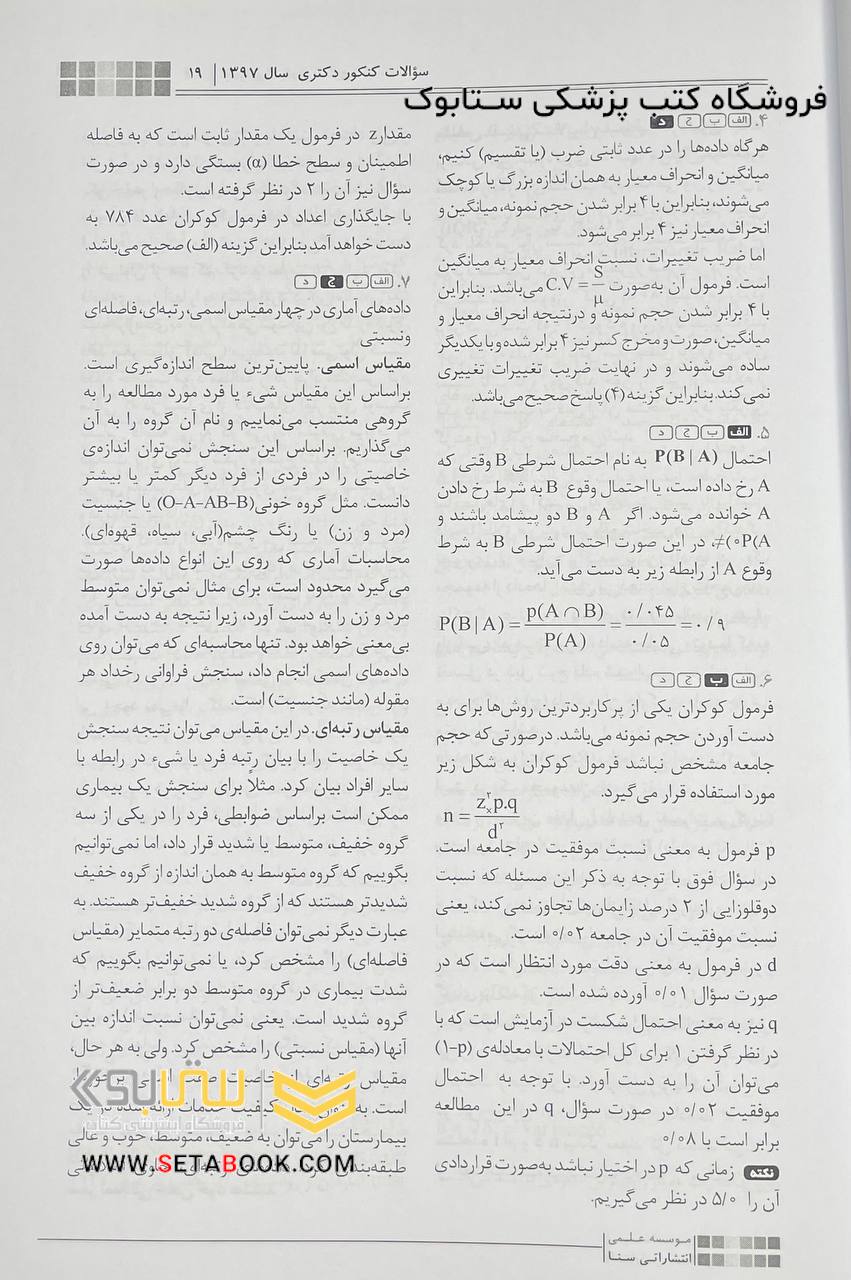 سؤالات کنکور دکتری سال ۱۳۹۷ | ۱۹
فروشگاه کتب پزشکی ستابوک
۴. الف ب ج د
هرگاه داده‌ها را در عدد ثابتی ضرب (یا تقسیم) کنیم،
میانگین و انحراف معیار به همان اندازه بزرگ یا کوچک
می‌شوند، بنابراین با ۴ برابر شدن حجم نمونه، میانگین و
انحراف معیار نیز ۴ برابر می‌شود.
اما ضریب تغییرات، نسبت انحراف معیار به میانگین
است. فرمول آن به‌صورت C.V = S/μ می‌باشد. بنابراین
با ۴ برابر شدن حجم نمونه و درنتیجه انحراف معیار و
میانگین، صورت و مخرج کسر نیز ۴ برابر شده و با یکدیگر
ساده می‌شوند و در نهایت ضریب تغییرات تغییری
نمی‌کند. بنابراین گزینه (۴) پاسخ صحیح می‌باشد.
۵. الف ب ج د
احتمال P(B | A) به نام احتمال شرطی B وقتی که
A رخ داده است، یا احتمال وقوع B به شرط رخ دادن
A خوانده می‌شود. اگر A و B دو پیشامد باشند و
P(A)≠۰، در این صورت احتمال شرطی B به شرط
وقوع A از رابطه زیر به دست می‌آید.
P(B | A) = p(A ∩ B) / P(A) = ۰/۰۴۵ / ۰/۰۵ = ۰/۹
۶. الف ب ج د
فرمول کوکران یکی از پرکاربردترین روش‌ها برای به
دست آوردن حجم نمونه می‌باشد. درصورتی‌که حجم
جامعه مشخص نباشد فرمول کوکران به شکل زیر
مورد استفاده قرار می‌گیرد.
n = z²ₓp.q / d²
p فرمول به معنی نسبت موفقیت در جامعه است.
در سؤال فوق با توجه به ذکر این مسئله که نسبت
دوقلوزایی از ۲ درصد زایمان‌ها تجاوز نمی‌کند، یعنی
نسبت موفقیت آن در جامعه ۰/۰۲ است.
d در فرمول به معنی دقت مورد انتظار است که در
صورت سؤال ۰/۰۱ آورده شده است.
q نیز به معنی احتمال شکست در آزمایش است که با
در نظر گرفتن ۱ برای کل احتمالات با معادله‌ی (p-۱)
می‌توان آن را به دست آورد. با توجه به احتمال
موفقیت ۰/۰۲ در صورت سؤال، q در این مطالعه
برابر است با ۰/۰۸
نکته زمانی که p در اختیار نباشد به‌صورت قراردادی
آن را ۵/۰ در نظر می‌گیریم.
مقدار z در فرمول یک مقدار ثابت است که به فاصله
اطمینان و سطح خطا (α) بستگی دارد و در صورت
سؤال نیز آن را ۲ در نظر گرفته است.
با جایگذاری اعداد در فرمول کوکران عدد ۷۸۴ به
دست خواهد آمد بنابراین گزینه (الف) صحیح می‌باشد.
۷. الف ب ج د
داده‌های آماری در چهار مقیاس اسمی، رتبه‌ای، فاصله‌ای
ونسبتی
مقیاس اسمی. پایین‌ترین سطح اندازه‌گیری است.
براساس این مقیاس شیء یا فرد مورد مطالعه را به
گروهی منتسب می‌نماییم و نام آن گروه را به آن
می‌گذاریم. براساس این سنجش نمی‌توان اندازه‌ی
خاصیتی را در فردی از فرد دیگر کمتر یا بیشتر
دانست. مثل گروه خونی(O-A-AB-B) یا جنسیت
(مرد و زن) یا رنگ چشم(آبی، سیاه، قهوه‌ای).
محاسبات آماری که روی این انواع داده‌ها صورت
می‌گیرد محدود است، برای مثال نمی‌توان متوسط
مرد و زن را به دست آورد، زیرا نتیجه به دست آمده
بی‌معنی خواهد بود. تنها محاسبه‌ای که می‌توان روی
داده‌های اسمی انجام داد، سنجش فراوانی رخداد هر
مقوله (مانند جنسیت) است.
مقیاس رتبه‌ای. در این مقیاس می‌توان نتیجه سنجش
یک خاصیت را با بیان رتبه فرد یا شیء در رابطه با
سایر افراد بیان کرد. مثلاً برای سنجش یک بیماری
ممکن است براساس ضوابطی، فرد را در یکی از سه
گروه خفیف، متوسط یا شدید قرار داد، اما نمی‌توانیم
بگوییم که گروه متوسط به همان اندازه از گروه خفیف
شدیدتر هستند که از گروه شدید خفیف‌تر هستند. به
عبارت دیگر نمی‌توان فاصله‌ی دو رتبه متمایر (مقیاس
فاصله‌ای) را مشخص کرد، یا نمی‌توانیم بگوییم که
شدت بیماری در گروه متوسط دو برابر ضعیف‌تر از
گروه شدید است. یعنی نمی‌توان نسبت اندازه بین
آنها (مقیاس نسبتی) را مشخص کرد. ولی به هر حال،
مقیاس
است. به کیفیت خدمات ارائه شده در یک
بیمارستان را می‌توان به ضعیف، متوسط، خوب و عالی
طبقه‌بندی
ستابوک
فروشگاه اینترنتی کتاب
WWW.SETABOOK.COM
موسسه علمی
انتشاراتی سنا